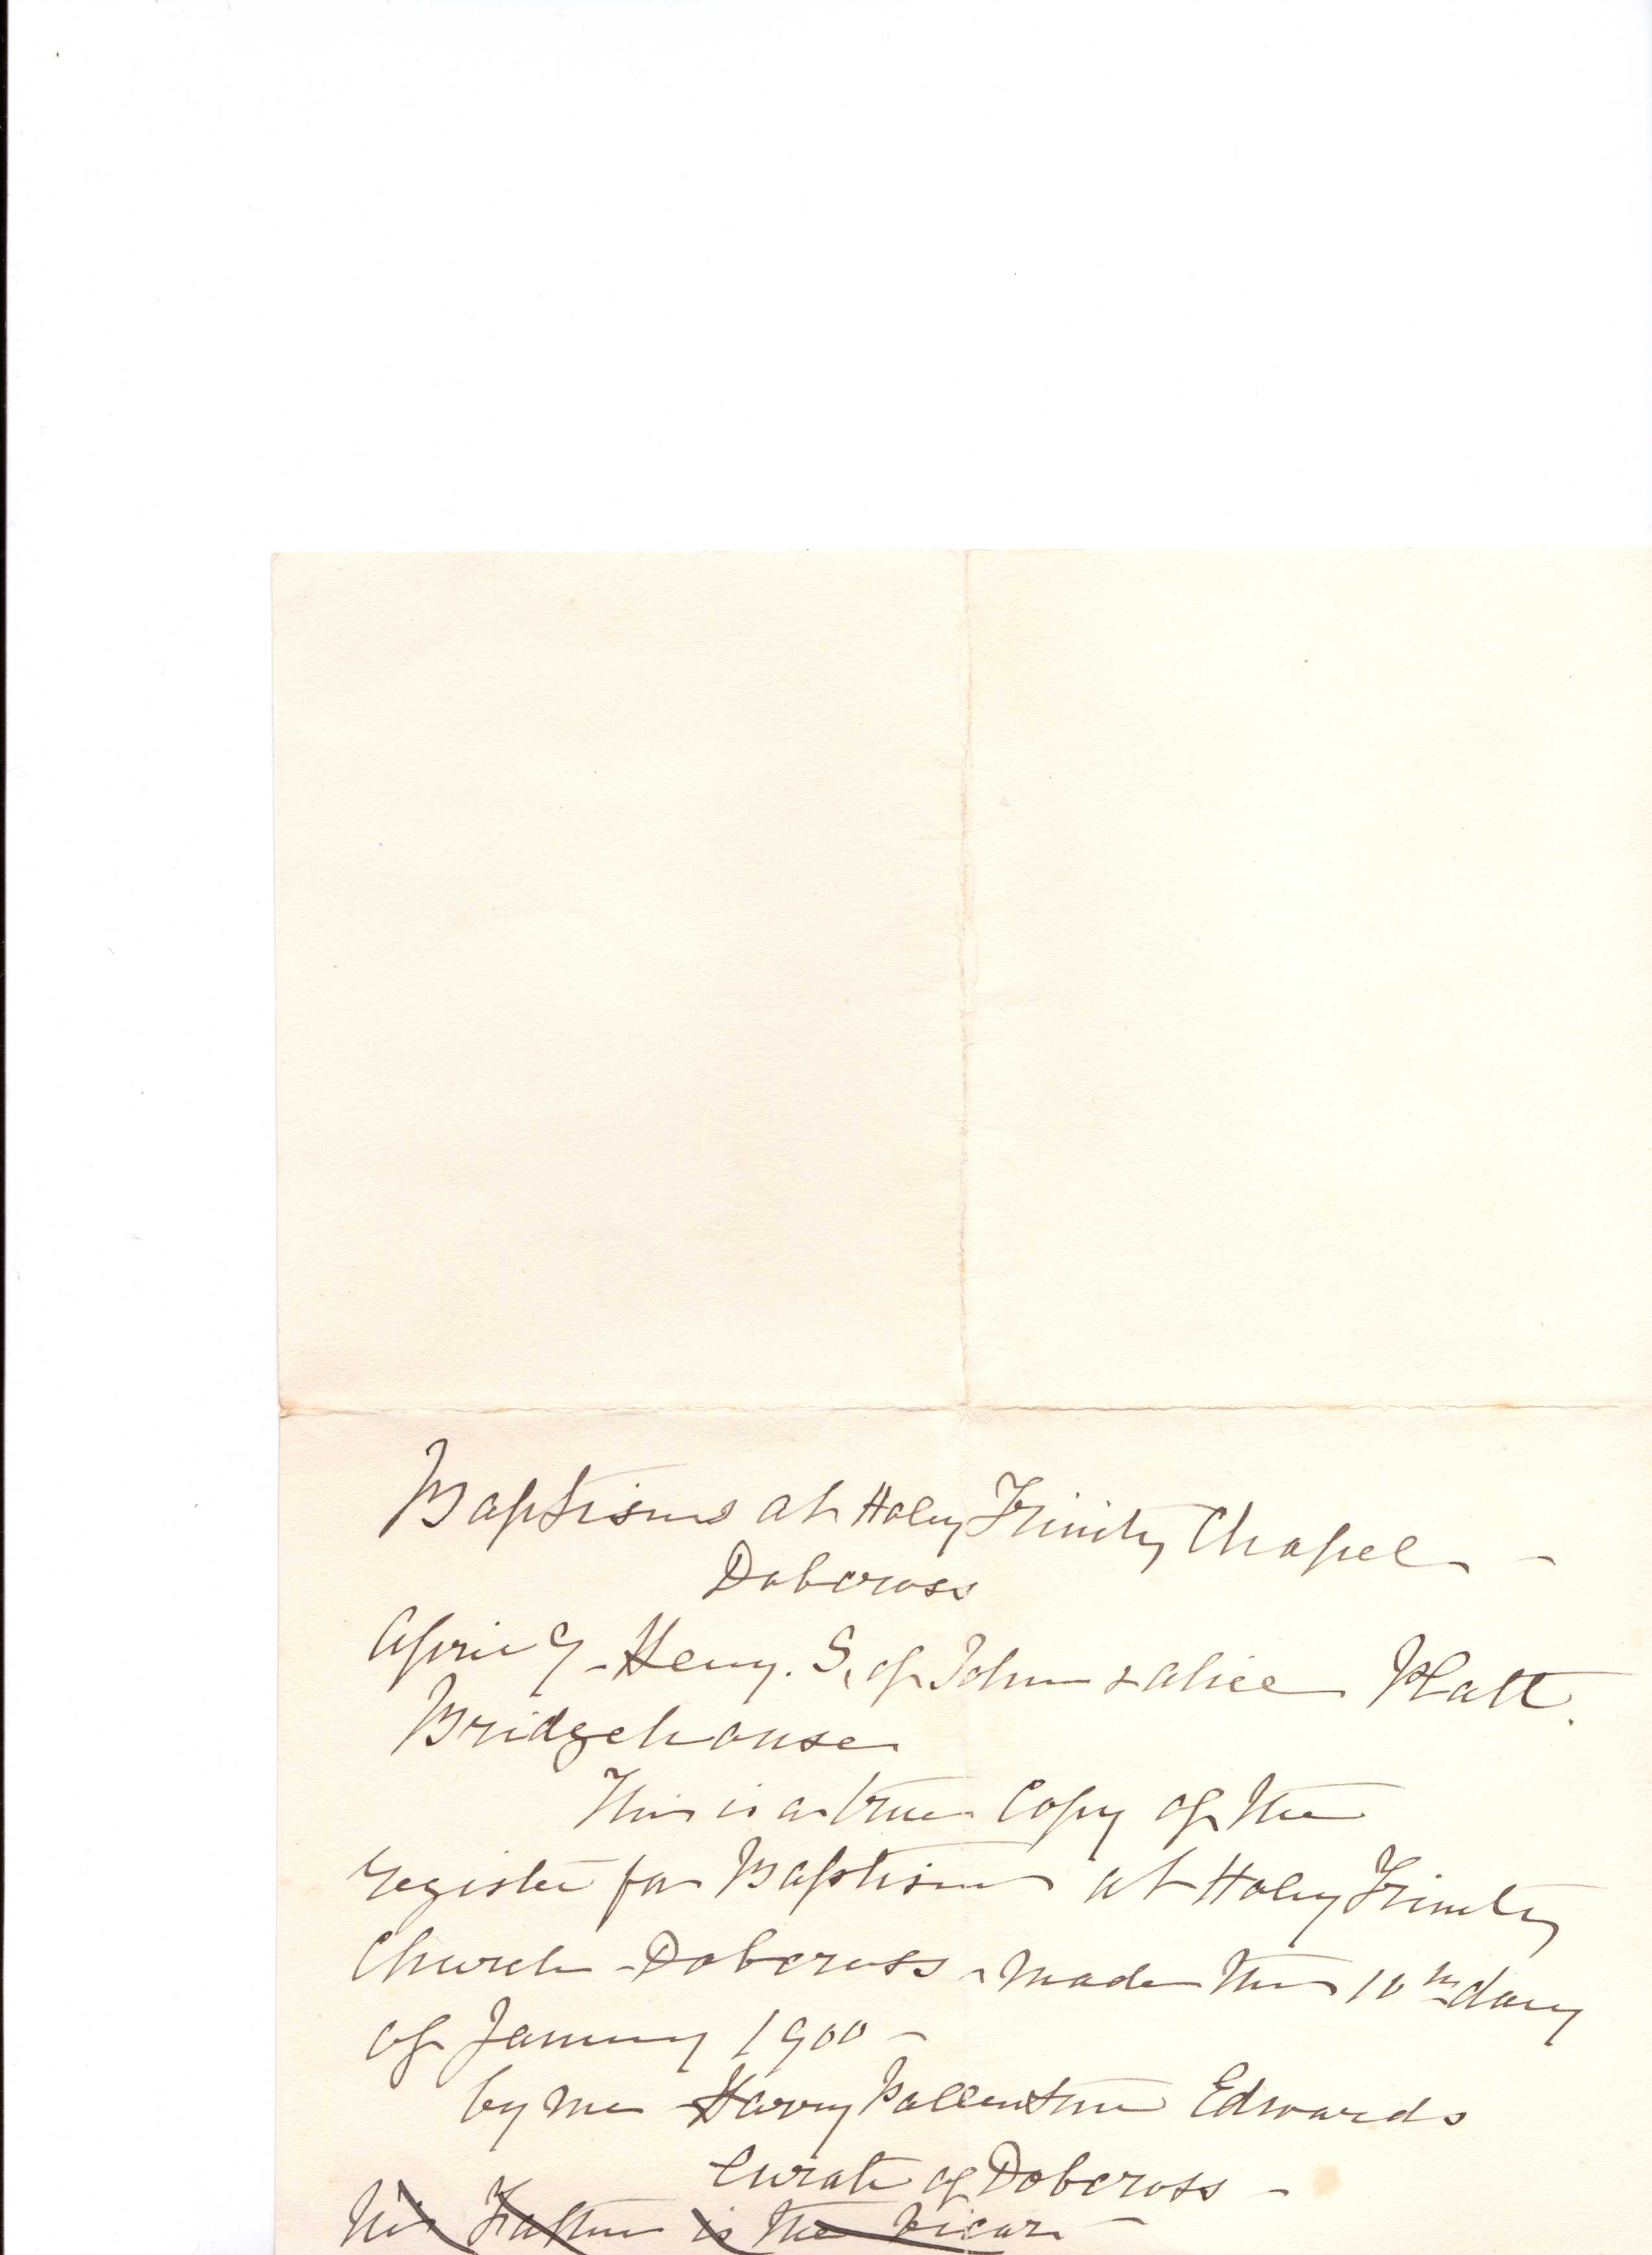 Baptisms at Holy Trinity Chapel -
Dobcross
April 9 - Henry. S. of John & Alice Platt.
Bridgehouse
This is a true Copy of the
register for Baptisms at Holy Trinity
Church - Dobcross - made this 10th day
of January 1900 -
by me Harry Edwards
Curate of Dobcross -
His Father is the Vicar -